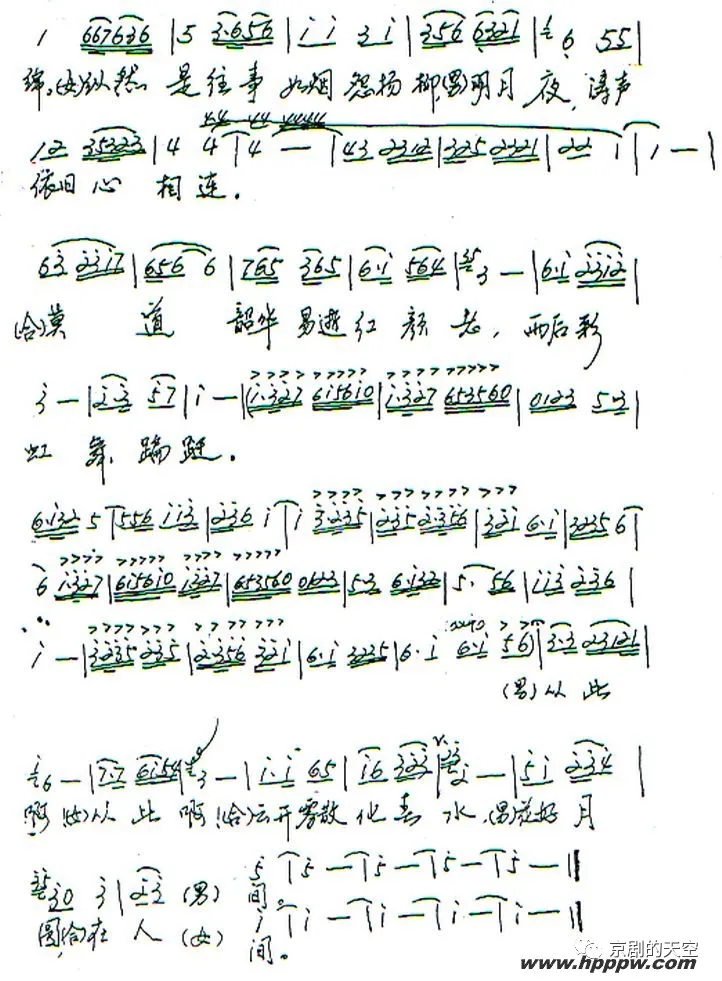 1 667636 | 5 3·656 | i i 3 i | 356 6321 | 6 55 |
绵。(女)纵然 是往事 如烟 怨杨柳,(男)明月 夜,涛声
12 35323 | 4 4 | 4 — | 43 2312 | 325 2321 | 22 i | i — |
依旧心 相连。
63 2317 | 656 6 | 765 365 | 6·i 564 | 3 — | 6·i 2312 |
(合)莫 道 韶华 易逝 红 颜 老, 雨后彩
3 — | 2·3 57 | i — | (i·327 615610 | i·327 653560 | 0123 53 |
虹 舞 蹁跹。
6·132 5 | 556 113 | 236 i | i 3·235 | 235 2·356 | 321 6·i | 3235 6 |
6 1327 | 615610 1327 | 653560 0123 | 53 6·132 | 5· 56 | 113 236 |
i — | 3235 235 | 2·356 321 | 6·i 3235 | 6·i 6·i 56) | 3·3 23121 |
(男)从此
6 — | 7·7 6154 | 3 — | i·i 65 | i6 323 | 2 — | 5i 234 |
啊 (女)从 此 啊!(合)云开雾散 化春 水,(男)花好 月
30 3 | 23 (男) 5 | 5 — | 5 — | 5 — | 5 — ‖
间。
圆(合)在 人 (女) i | i — | i — | i — | i — ‖
间。
京剧的天空
www.hpppw.com